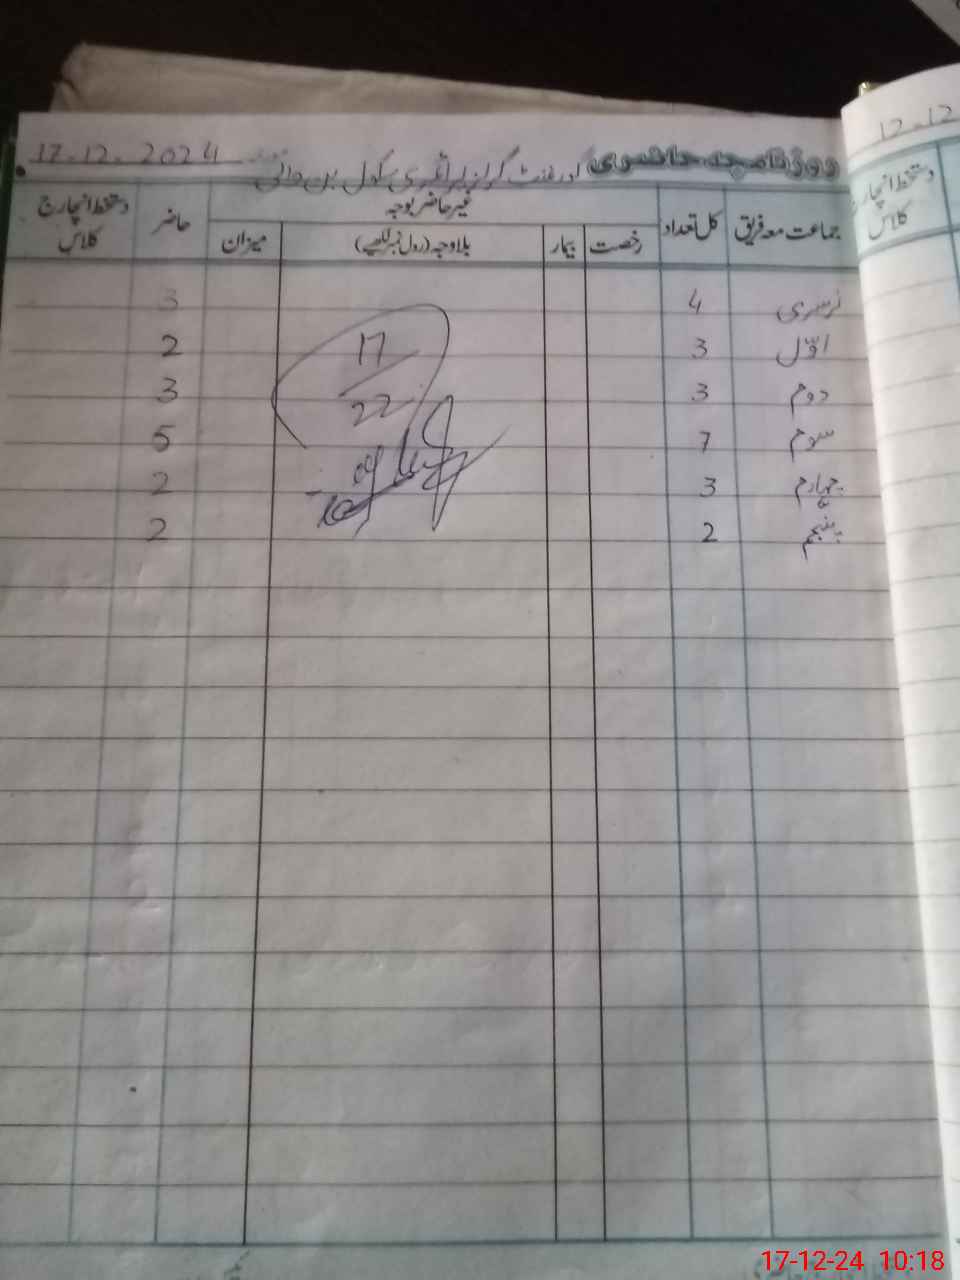 روزنامچہ حاضری گورنمنٹ گرلز پرائمری سکول بن والی 17.12.2024
جماعت معہ فریق کل تعداد غیر حاضر بوجہ حاضر دستخط انچارج کلاس
رخصت بیمار بلاوجہ (رول نمبر لکھیے) میزان
نرسری 4 3
اوّل 3 2
دوم 3 3
سوم 7 5
چہارم 3 2
پنجم 2 2
17
22
12.12
دستخط انچارج
کلاس
17-12-24 10:18